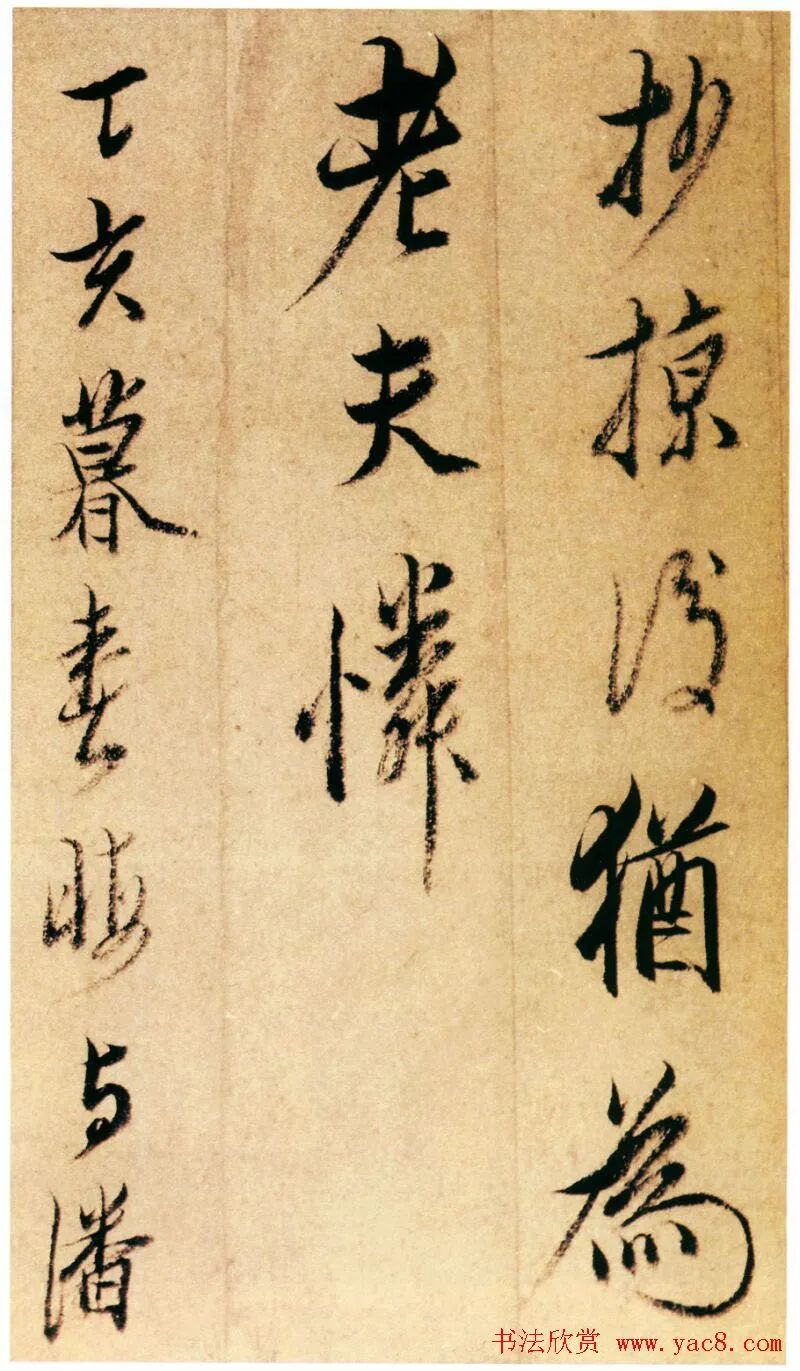 抄掠後猶為
老夫憐
丁亥暮春晦与潘
书法欣赏 www.yac8.com